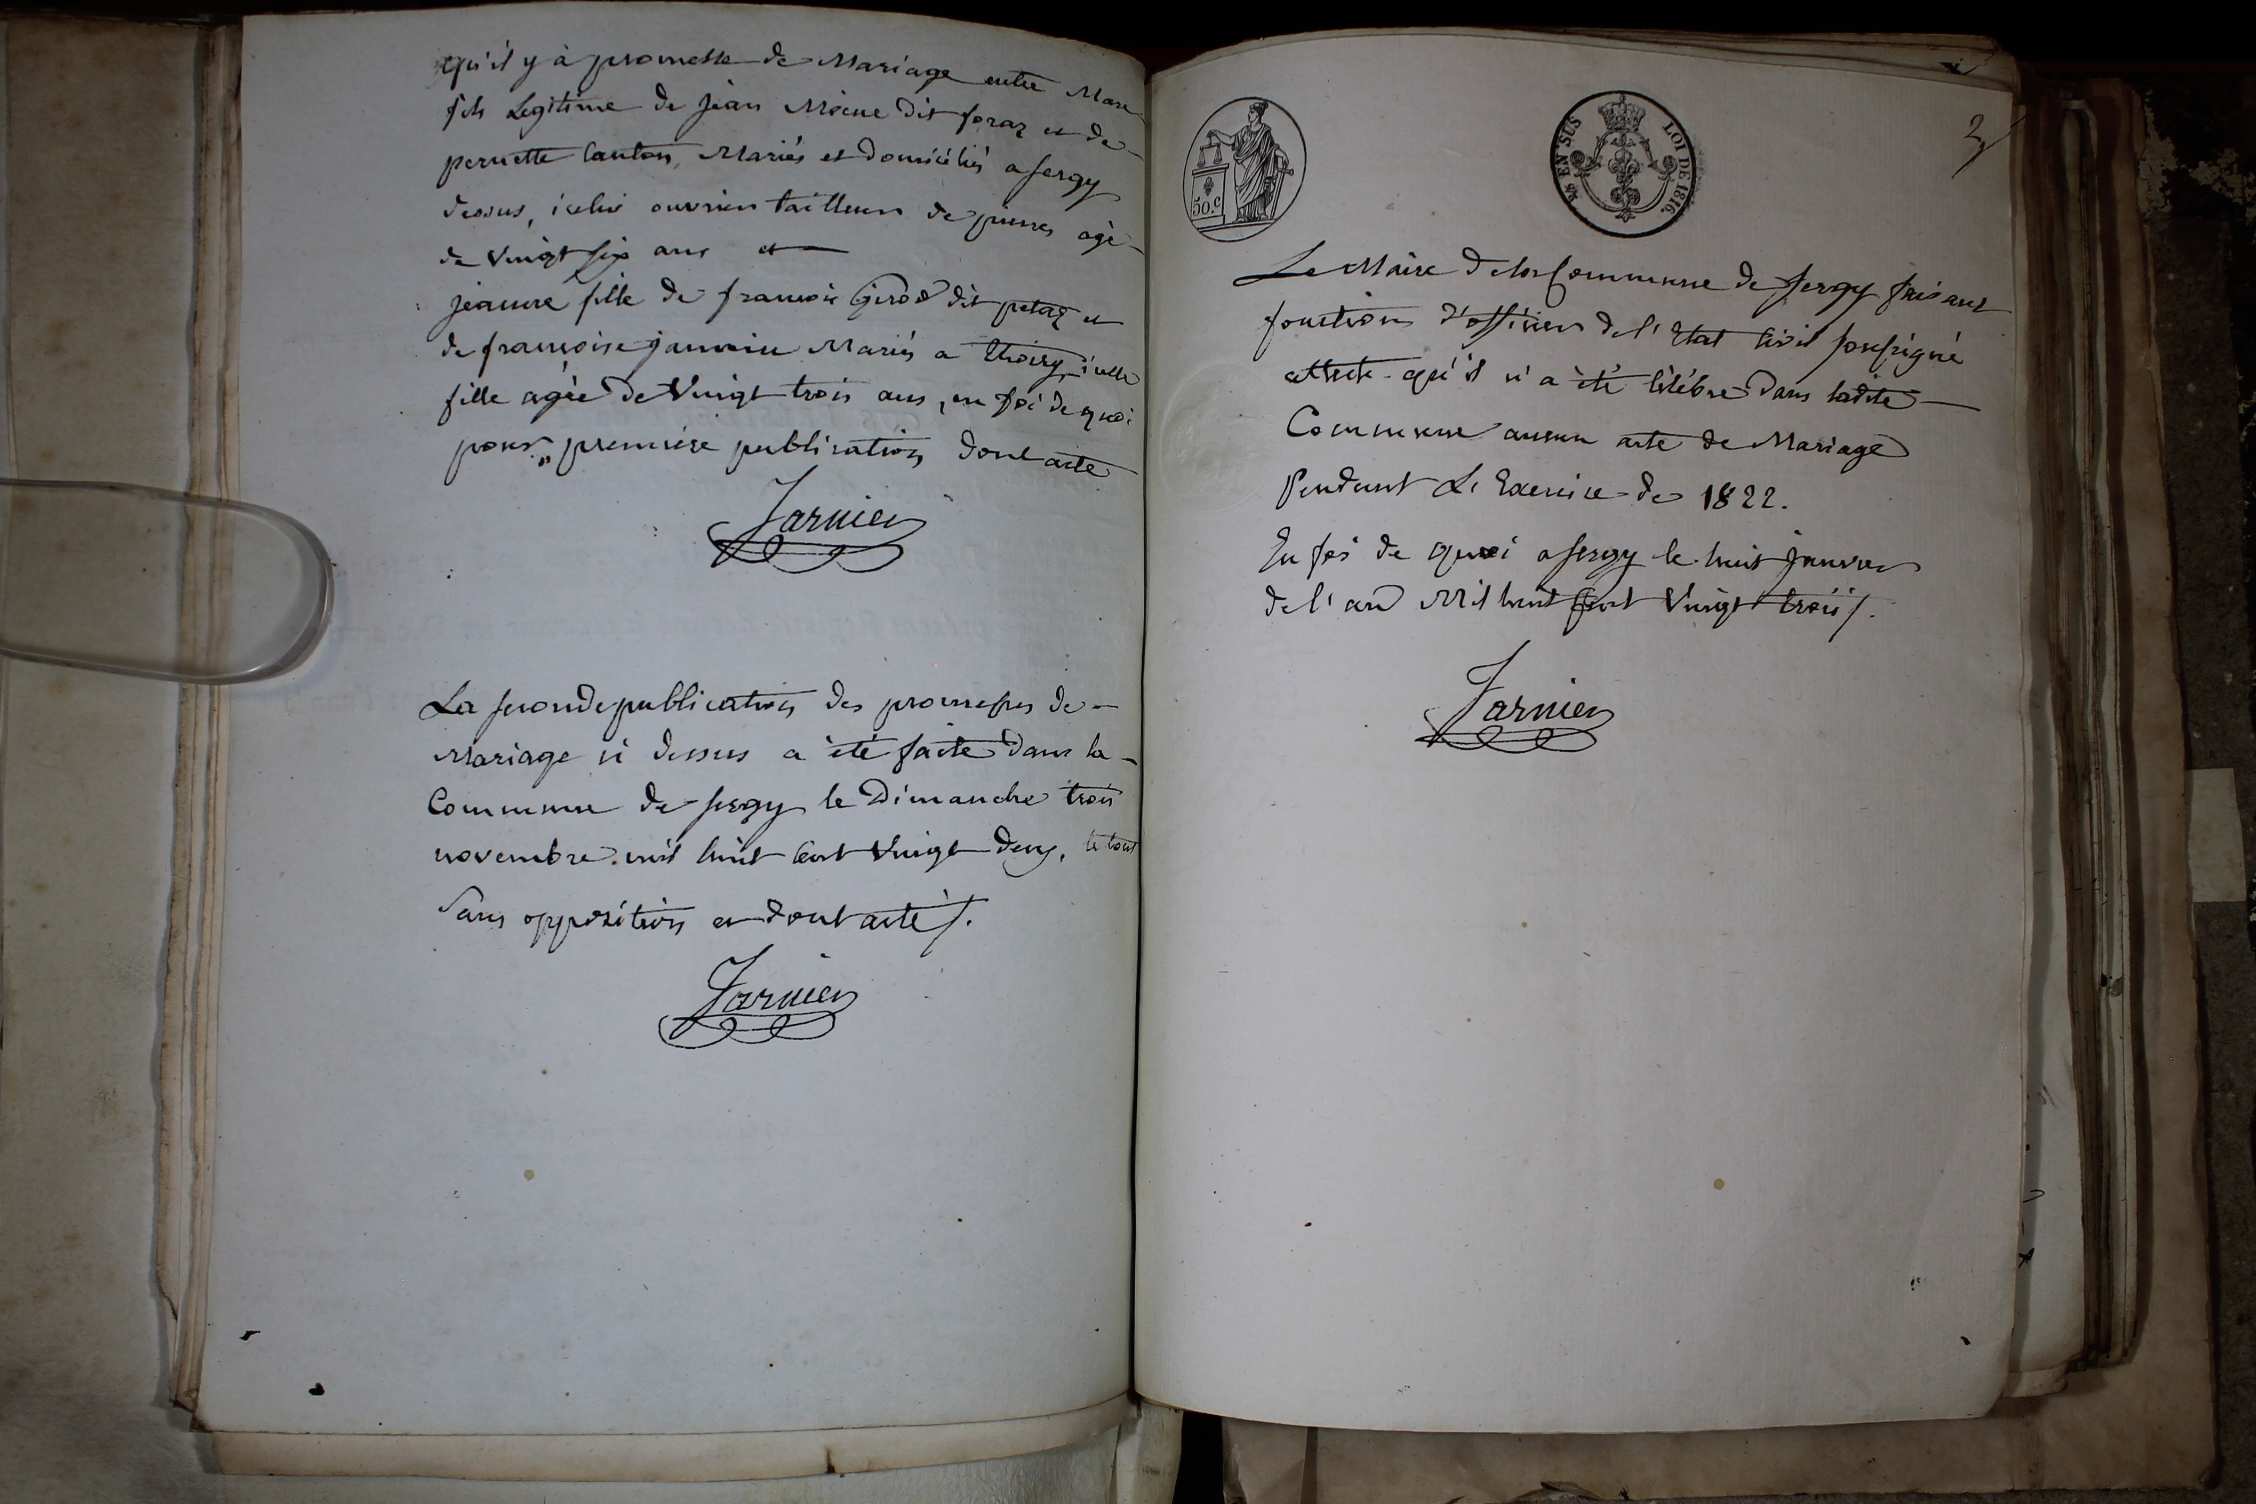 qu'il y à promesse de Mariage entre Marc
fils Legitime de jean Moine dit foraz et de
pernette lanton, Mariés et domiciliés a sergy
dessus, icelui ouvrier tailleur de pierres agé
de vingt six ans et
jeanne fille de francois girod dit petaz et
de francoise janvin Mariés a thoiry, icelle
fille agée de Vingt trois ans, en foi de quoi
pour premiére publication dont acte
Jarnier
La seconde publication des promesses de
Mariage ci dessus a été faite dans la
Commune de sergy le Dimanche trois
novembre mil huit cent vingt deux, le tout
Sans opposition et dont acte /.
Jarnier
50.c
EN SUS
LOI DE 1816.
Le Maire de la Commune de sergy faisant
fonctions d'officier de l'Etat Civil soussigné
atteste qu'il n'a été célébré dans ladite
Commune aucun acte de Mariage
Pendant L'Exercice de 1822.
En foi de quoi a sergy le huit Janvier
de l'an Mil huit Cent Vingt trois /.
Jarnier